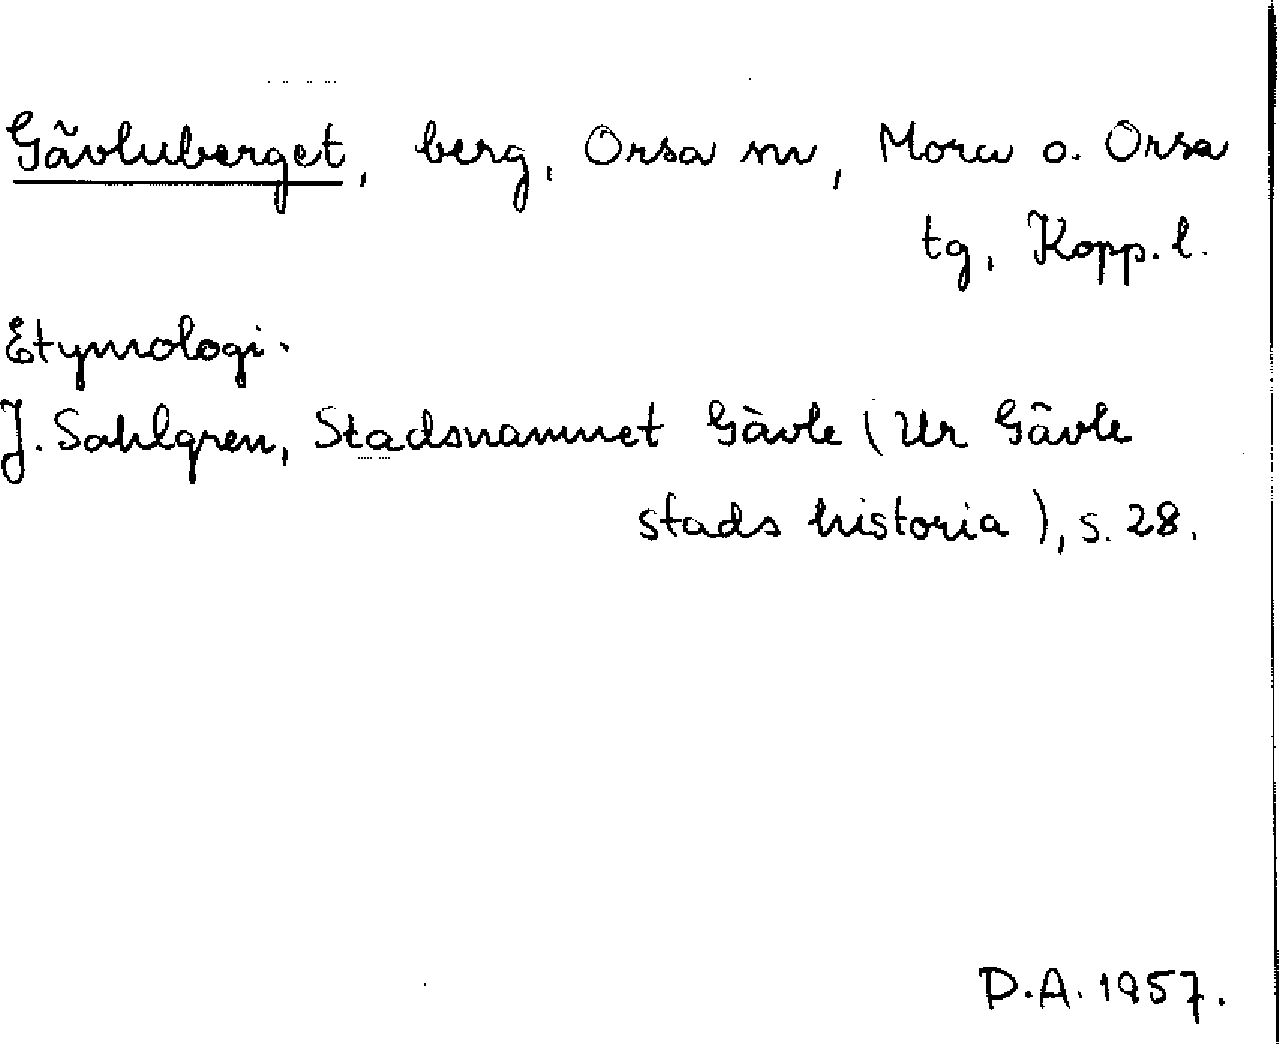 Gävluberget, berg, Orsa sn, Mora o. Orsa
tg, Kopp. l.
Etymologi.
J. Sahlgren, Stadsnamnet Gävle (Ur Gävle
stads historia), s. 28.
D.A. 1957.